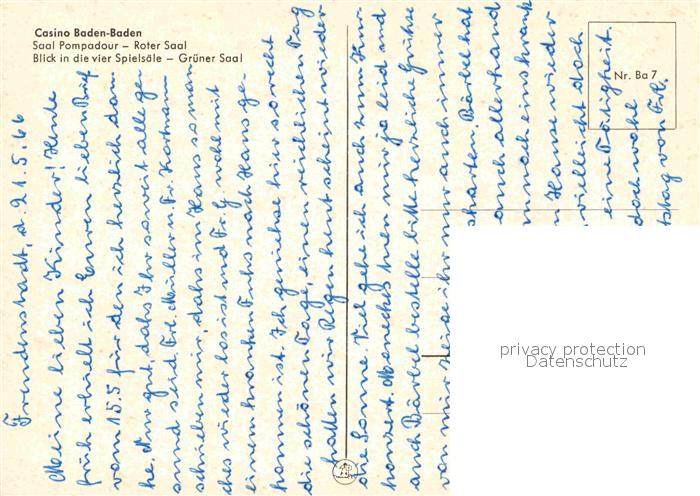 Casino Baden-Baden
Saal Pompadour – Roter Saal
Blick in die vier Spielsäle – Grüner Saal
Nr. Ba 7
Freudenstadt, d. 21.5.66
Meine lieben Kinder! Heute
früh erhielt ich Euren lieben Brief
vom 15.5 für den ich herzlich dan
ke. Nur gut, dass Ihr soweit alle ge-
sund seid. Frl. Müller u. Fr.
schrieben mir, dass im Haus so man
ches wieder los ist und Fr. G. wohl mit
einem kranken Fuss nach Haus ge-
kommen ist. Ich geniesse hier so recht
die schönen Tage, einen reichlichen Tag
hatten wir Regen heut scheint wieder
die Sonne. Viel gehe ich auch zum Kur-
konzert. tuen mir ja leid und
auch Bärbel bestelle bitte herzliche Grüsse
von mir ihr nur auch immer
Bärbel hat
auch allerhand
noch eins krank
Hause wieder
vielleicht doch
eine Tätigkeit.
doch wohl
von Frl.
privacy protection
Datenschutz